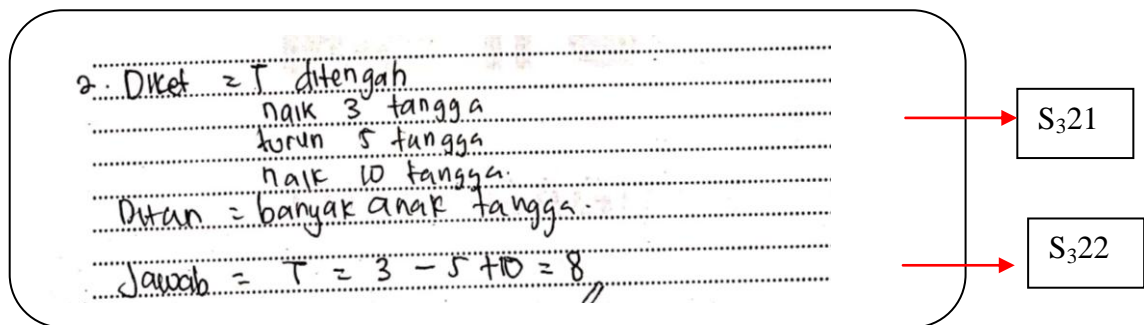 2. Diket = T ditengah
naik 3 tangga
turun 5 tangga
naik 10 tangga.
Ditan = banyak anak tangga.
Jawab = T = 3 - 5 + 10 = 8 //
S₃21
S₃22